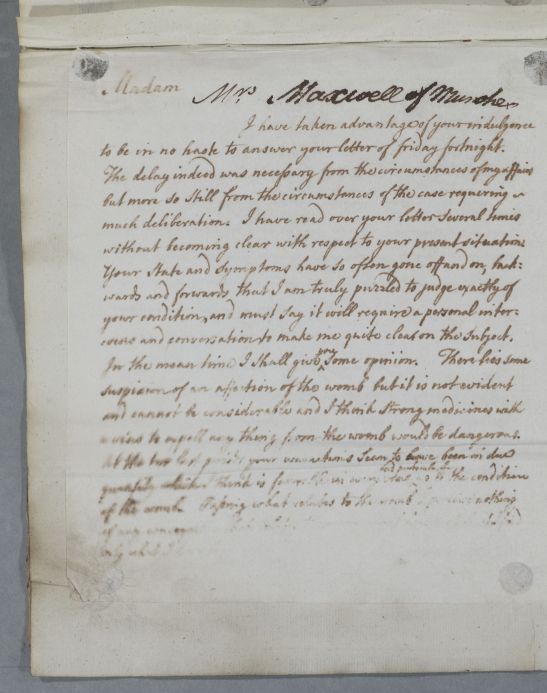 Madam
Mrs Maxwell of Munches
I have taken advantage of your indulgence
to be in no haste to answer your letter of friday fortnight.
The delay indeed was necessary from the circumstances of my affairs
but more so still from the circumstances of the case requering
much deliberation. I have read over your letter several times
without becoming clear with respect to your present situation.
Your State and Symptoms have so often gone off and on, back:
wards and forwards that I am truly puzled to judge exactly of
your condition, and must say it will require a personal inter:
course and conversation to make me quite clear on the subject.
In the mean time I shall give you some opinion. There lies some
suspicion of an affection of the womb but it is not evident
and cannot be considerable and I think strong medicines with
a view to expell any thing from the womb would be dangerous.
At the two last periods your evacuations seem to have been in due
quantity which I think is favourable in as to the condition
of the womb. Passing what relates to the womb I perceive nothing
of any
only what I